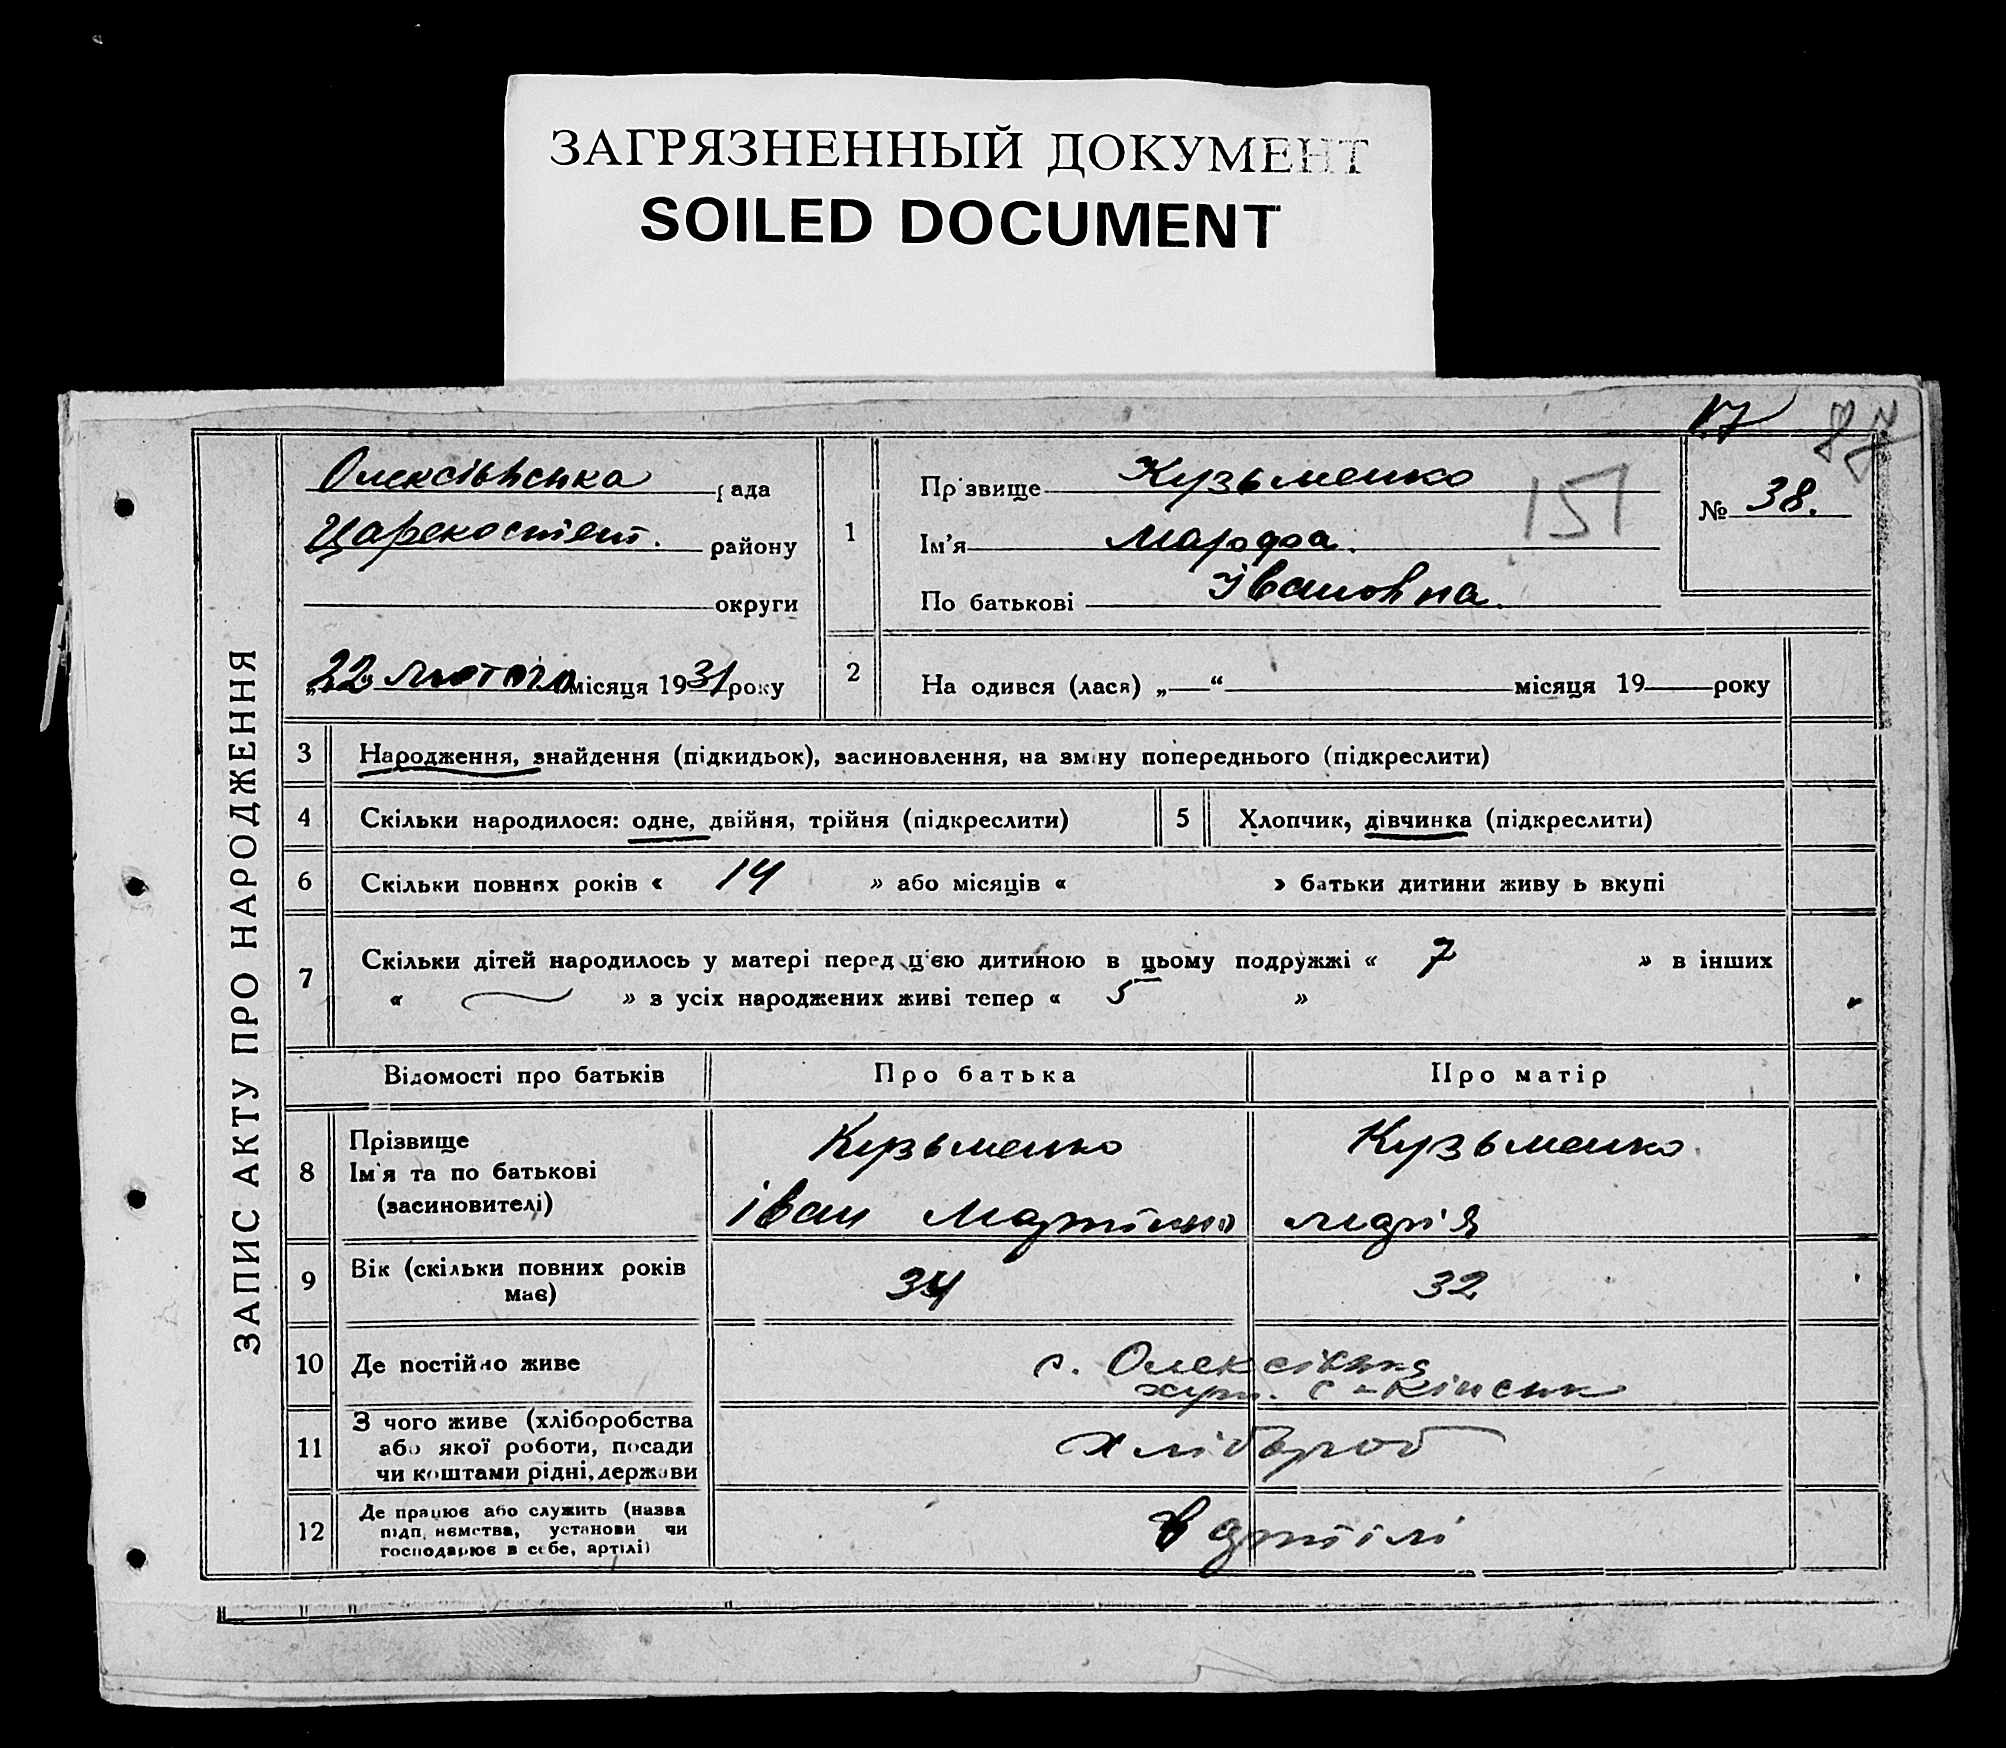 ЗАГРЯЗНЕННЫЙ ДОКУМЕНТ
SOILED DOCUMENT
17
87
ЗАПИС АКТУ ПРО НАРОДЖЕННЯ
Олексіївська рада
Царекостент. району
округи
„22 лютого місяця 1931 року
1
Прізвище Кузьменко
Ім’я Марфа.
По батькові Івановна.
151
№ 38.
2 На одився (лася) „—“ місяця 19 року
3 Народження, знайдення (підкидьок), засиновлення, на зміну попереднього (підкреслити)
4 Скільки народилося: одне, двійня, трійня (підкреслити) 5 Хлопчик, дівчинка (підкреслити)
6 Скільки повних років « 14 » або місяців « » батьки дитини живу ь вкупі
7 Скільки дітей народилось у матері перед ц’єю дитиною в цьому подружжі « 7 » в інших
« — » з усіх народжених живі тепер « 5 »
Відомості про батьків Про батька Про матір
8 Прізвище Кузьменко Кузьменко.
Ім’я та по батькові
(засиновителі) Іван Марія
9 Вік (скільки повних років має) 34 32
10 Де постійно живе с. Олексіївка
11 З чого живе (хліборобства
або якої роботи, посади хлібороб
чи коштами рідні, держави
12 Де працює або служить (назва
підп. немства, установи чи в артілі
господарює в себе, артілі)